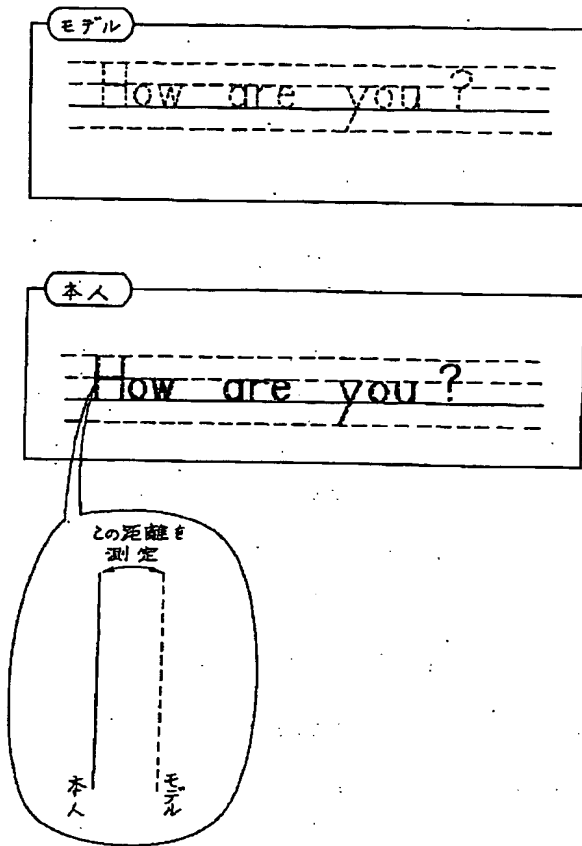 モデル
How are you?
本人
How are you?
この距離を
測定
本人
モデル